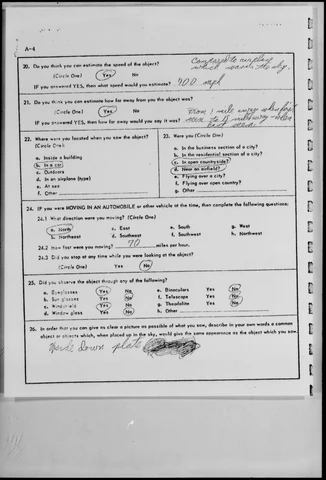 A-4
20. Do you think you can estimate the speed of the object?
(Circle One) Yes No
IF you answered YES, then what speed would you estimate? 700 mph
Compared to airplane
which was in the sky.
21. Do you think you can estimate how far away from you the object was?
(Circle One) Yes No
IF you answered YES, then how far away would you say it was?
From 1 mile away when first
seen to
last seen.
22. Where were you located when you saw the object?
(Circle One):
a. Inside a building
b. In a car
c. Outdoors
d. In an airplane (type)
e. At sea
f. Other
23. Were you (Circle One)
a. In the business section of a city?
b. In the residential section of a city?
c. In open countryside?
d. Near an airfield?
e. Flying over a city?
f. Flying over open country?
g. Other
24. IF you were MOVING IN AN AUTOMOBILE or other vehicle at the time, then complete the following questions:
24.1 What direction were you moving? (Circle One)
a. North c. East e. South g. West
b. Northeast d. Southeast f. Southwest h. Northwest
24.2 How fast were you moving? 70 miles per hour.
24.3 Did you stop at any time while you were looking at the object?
(Circle One) Yes No
25. Did you observe the object through any of the following?
a. Eyeglasses Yes No e. Binoculars Yes No
b. Sun glasses Yes No f. Telescope Yes No
c. Windshield Yes No g. Theodolite Yes No
d. Window glass Yes No h. Other
26. In order that you can give as clear a picture as possible of what you saw, describe in your own words a common
object or objects which, when placed up in the sky, would give the same appearance as the object which you saw.
down plate